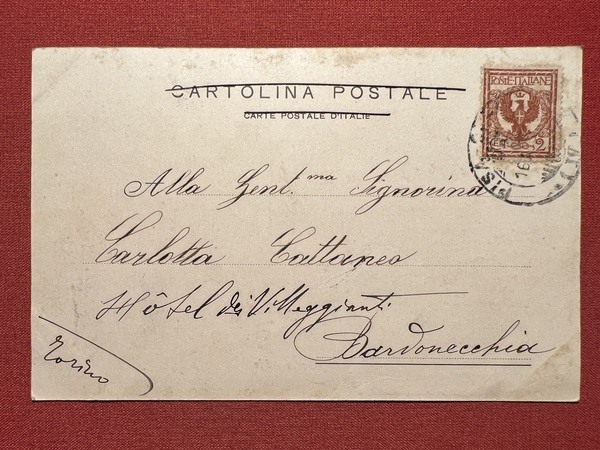 CARTOLINA POSTALE
CARTE POSTALE D'ITALIE
POSTE ITALIANE
2
Alla Gent.ma Signorina
Carlotta Cattaneo
Hôtel dei Villeggianti
Bardonecchia
Torino